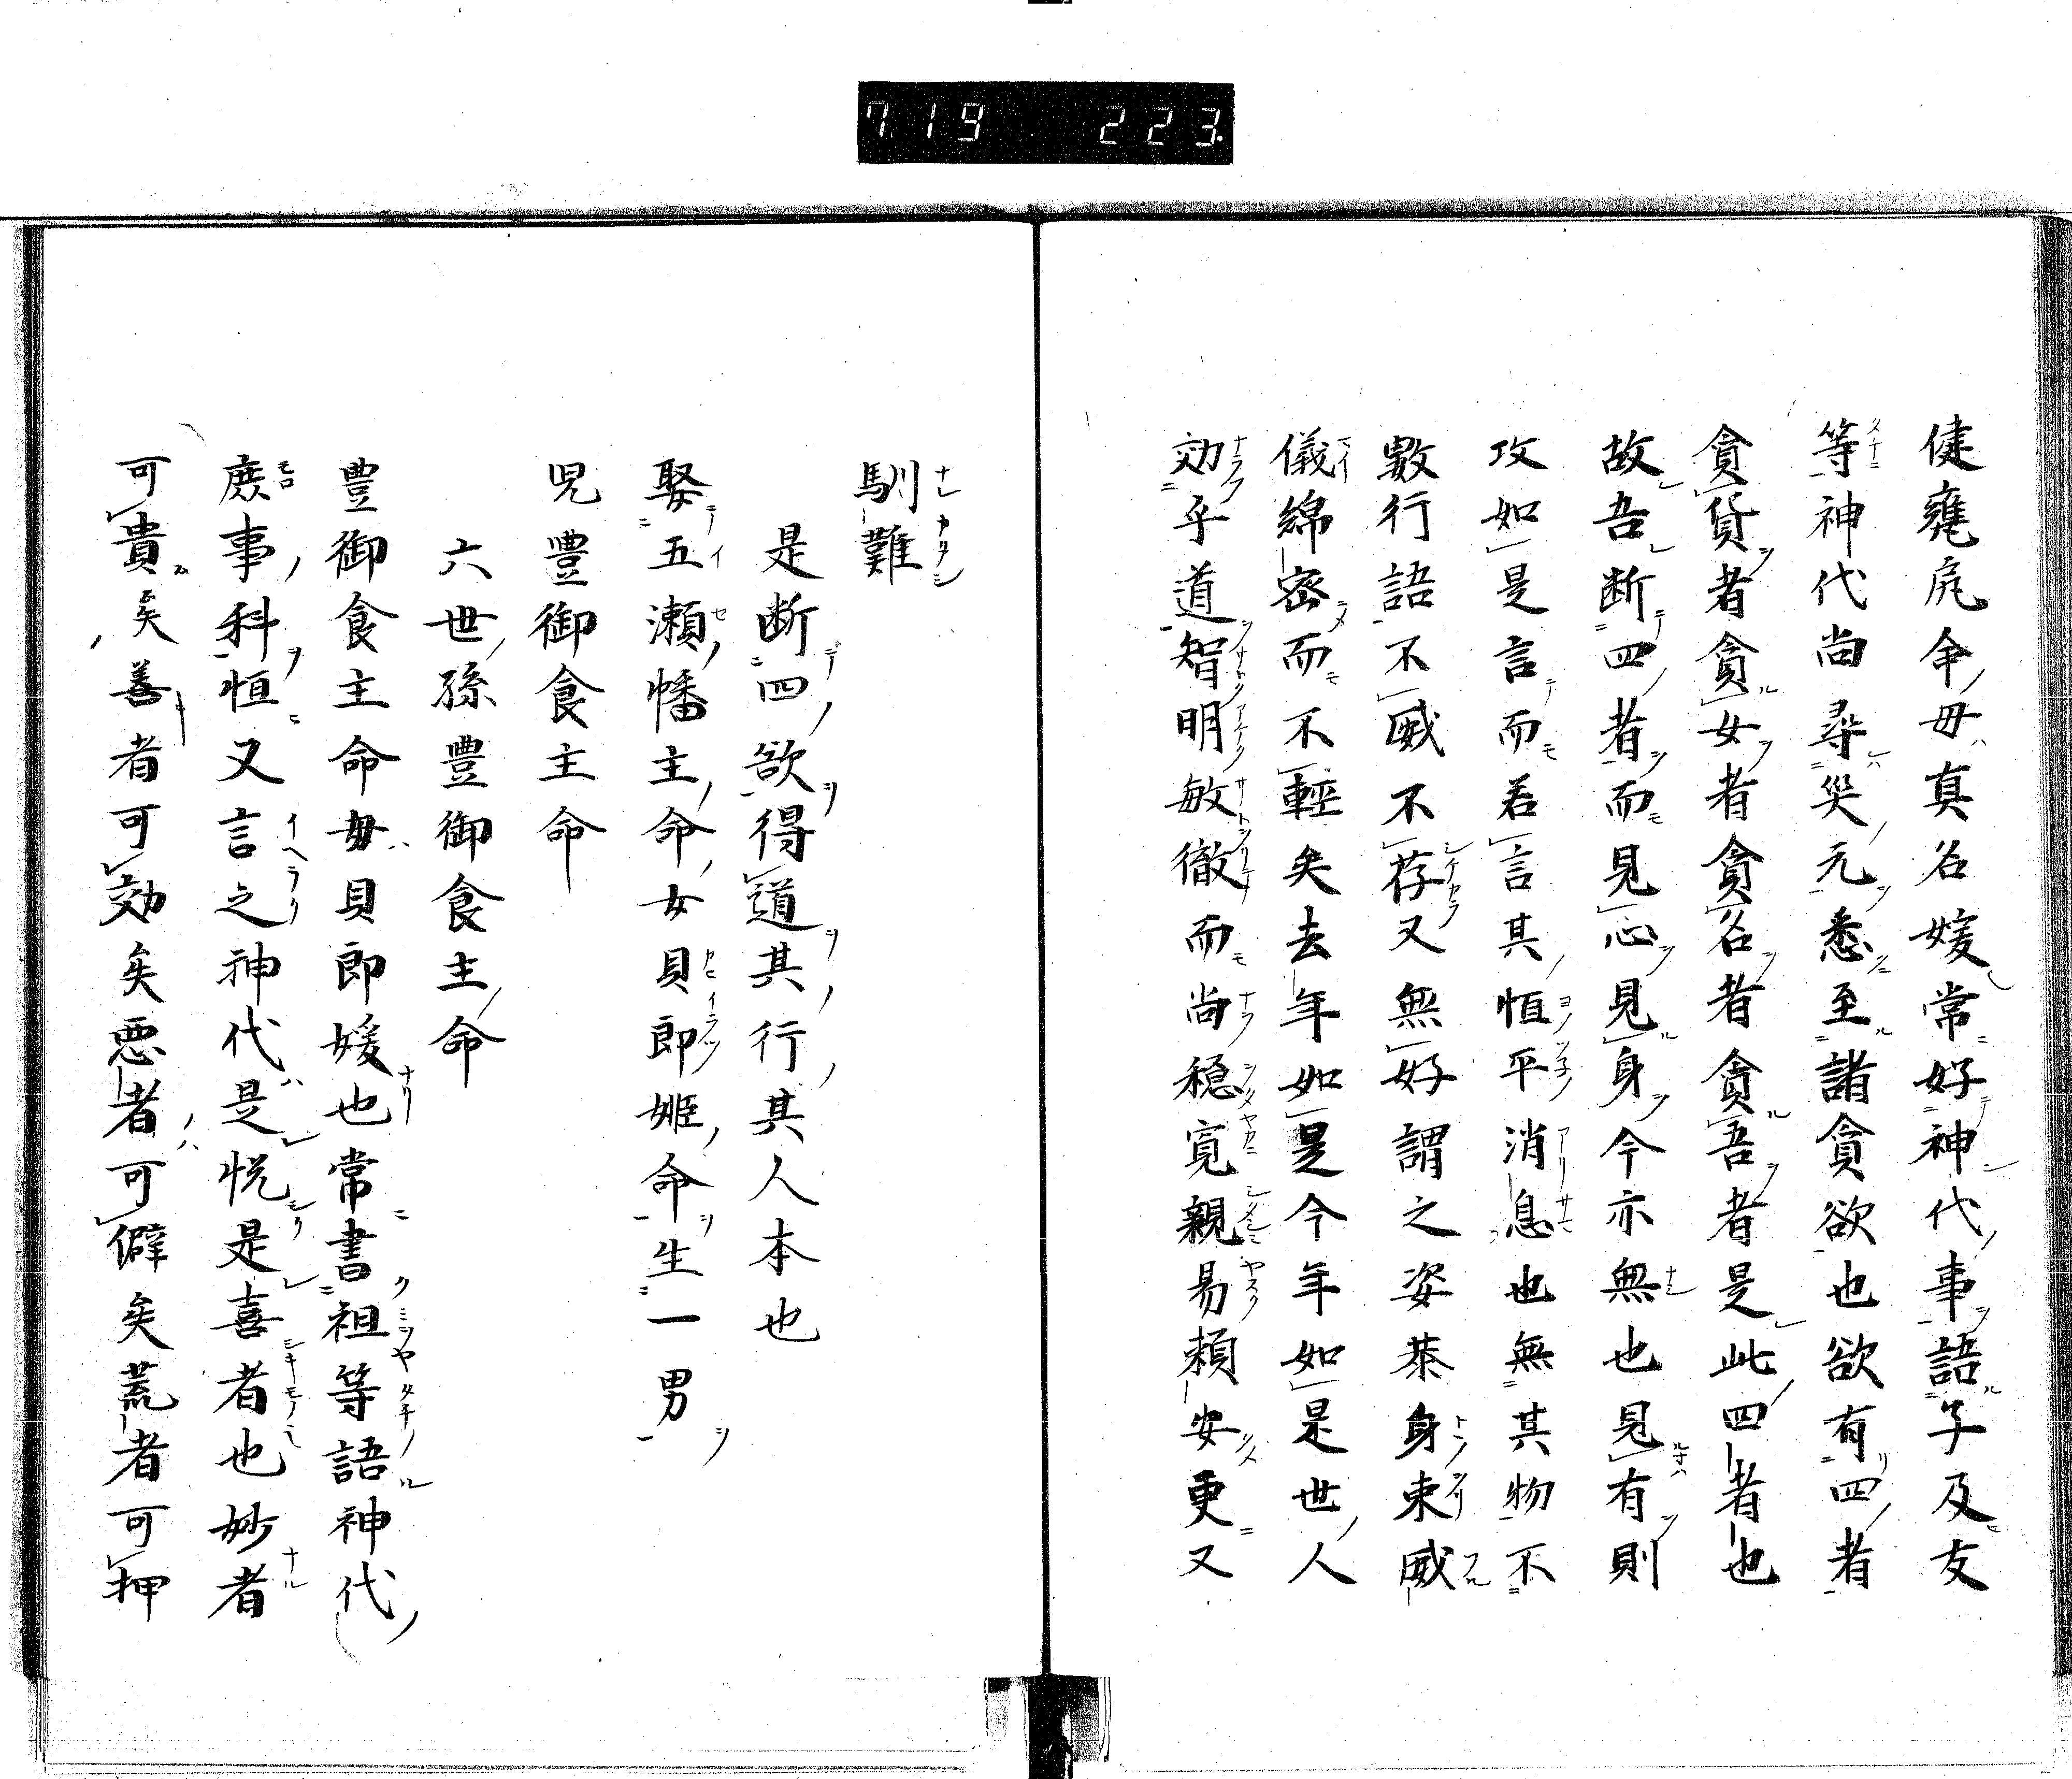 719 223.
健甕尻命母真名媛常好神代事語子及友
等神代尚尋災元悉至諸貪欲也欲有四者
貪貨者貪女者貪名者貪吾者是此四者也
故吾断四者而見心見身今亦無也見有則
攻如是言而若言其恒平消息也無其物不
敷行語不威不荐又無好謂之姿恭身束威
儀綿密而不軽矣去年如是今年如是世人
効乎道智明敏徹而尚穏寛親易頼安更又
馴難
是断四欲得道其行其人本也
娶五瀬幡主命女貝郎姫命生一男
児豊御食主命
六世孫豊御食主命
豊御食主命母貝郎媛也常書祖等語神代
庶事科恒又言之神代是悦是喜者也妙者
可貴矣善者可効矣悪者可僻矣荒者可押